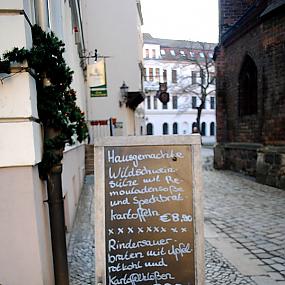 Hausgemachte
Wildschwein-
sülze mit Re-
mouladensoße
und Speckbrat-
kartoffeln € 8,90
xxxxxxx
Rindersauer-
braten mit Apfel-
rotkohl und
Kartoffelklößen